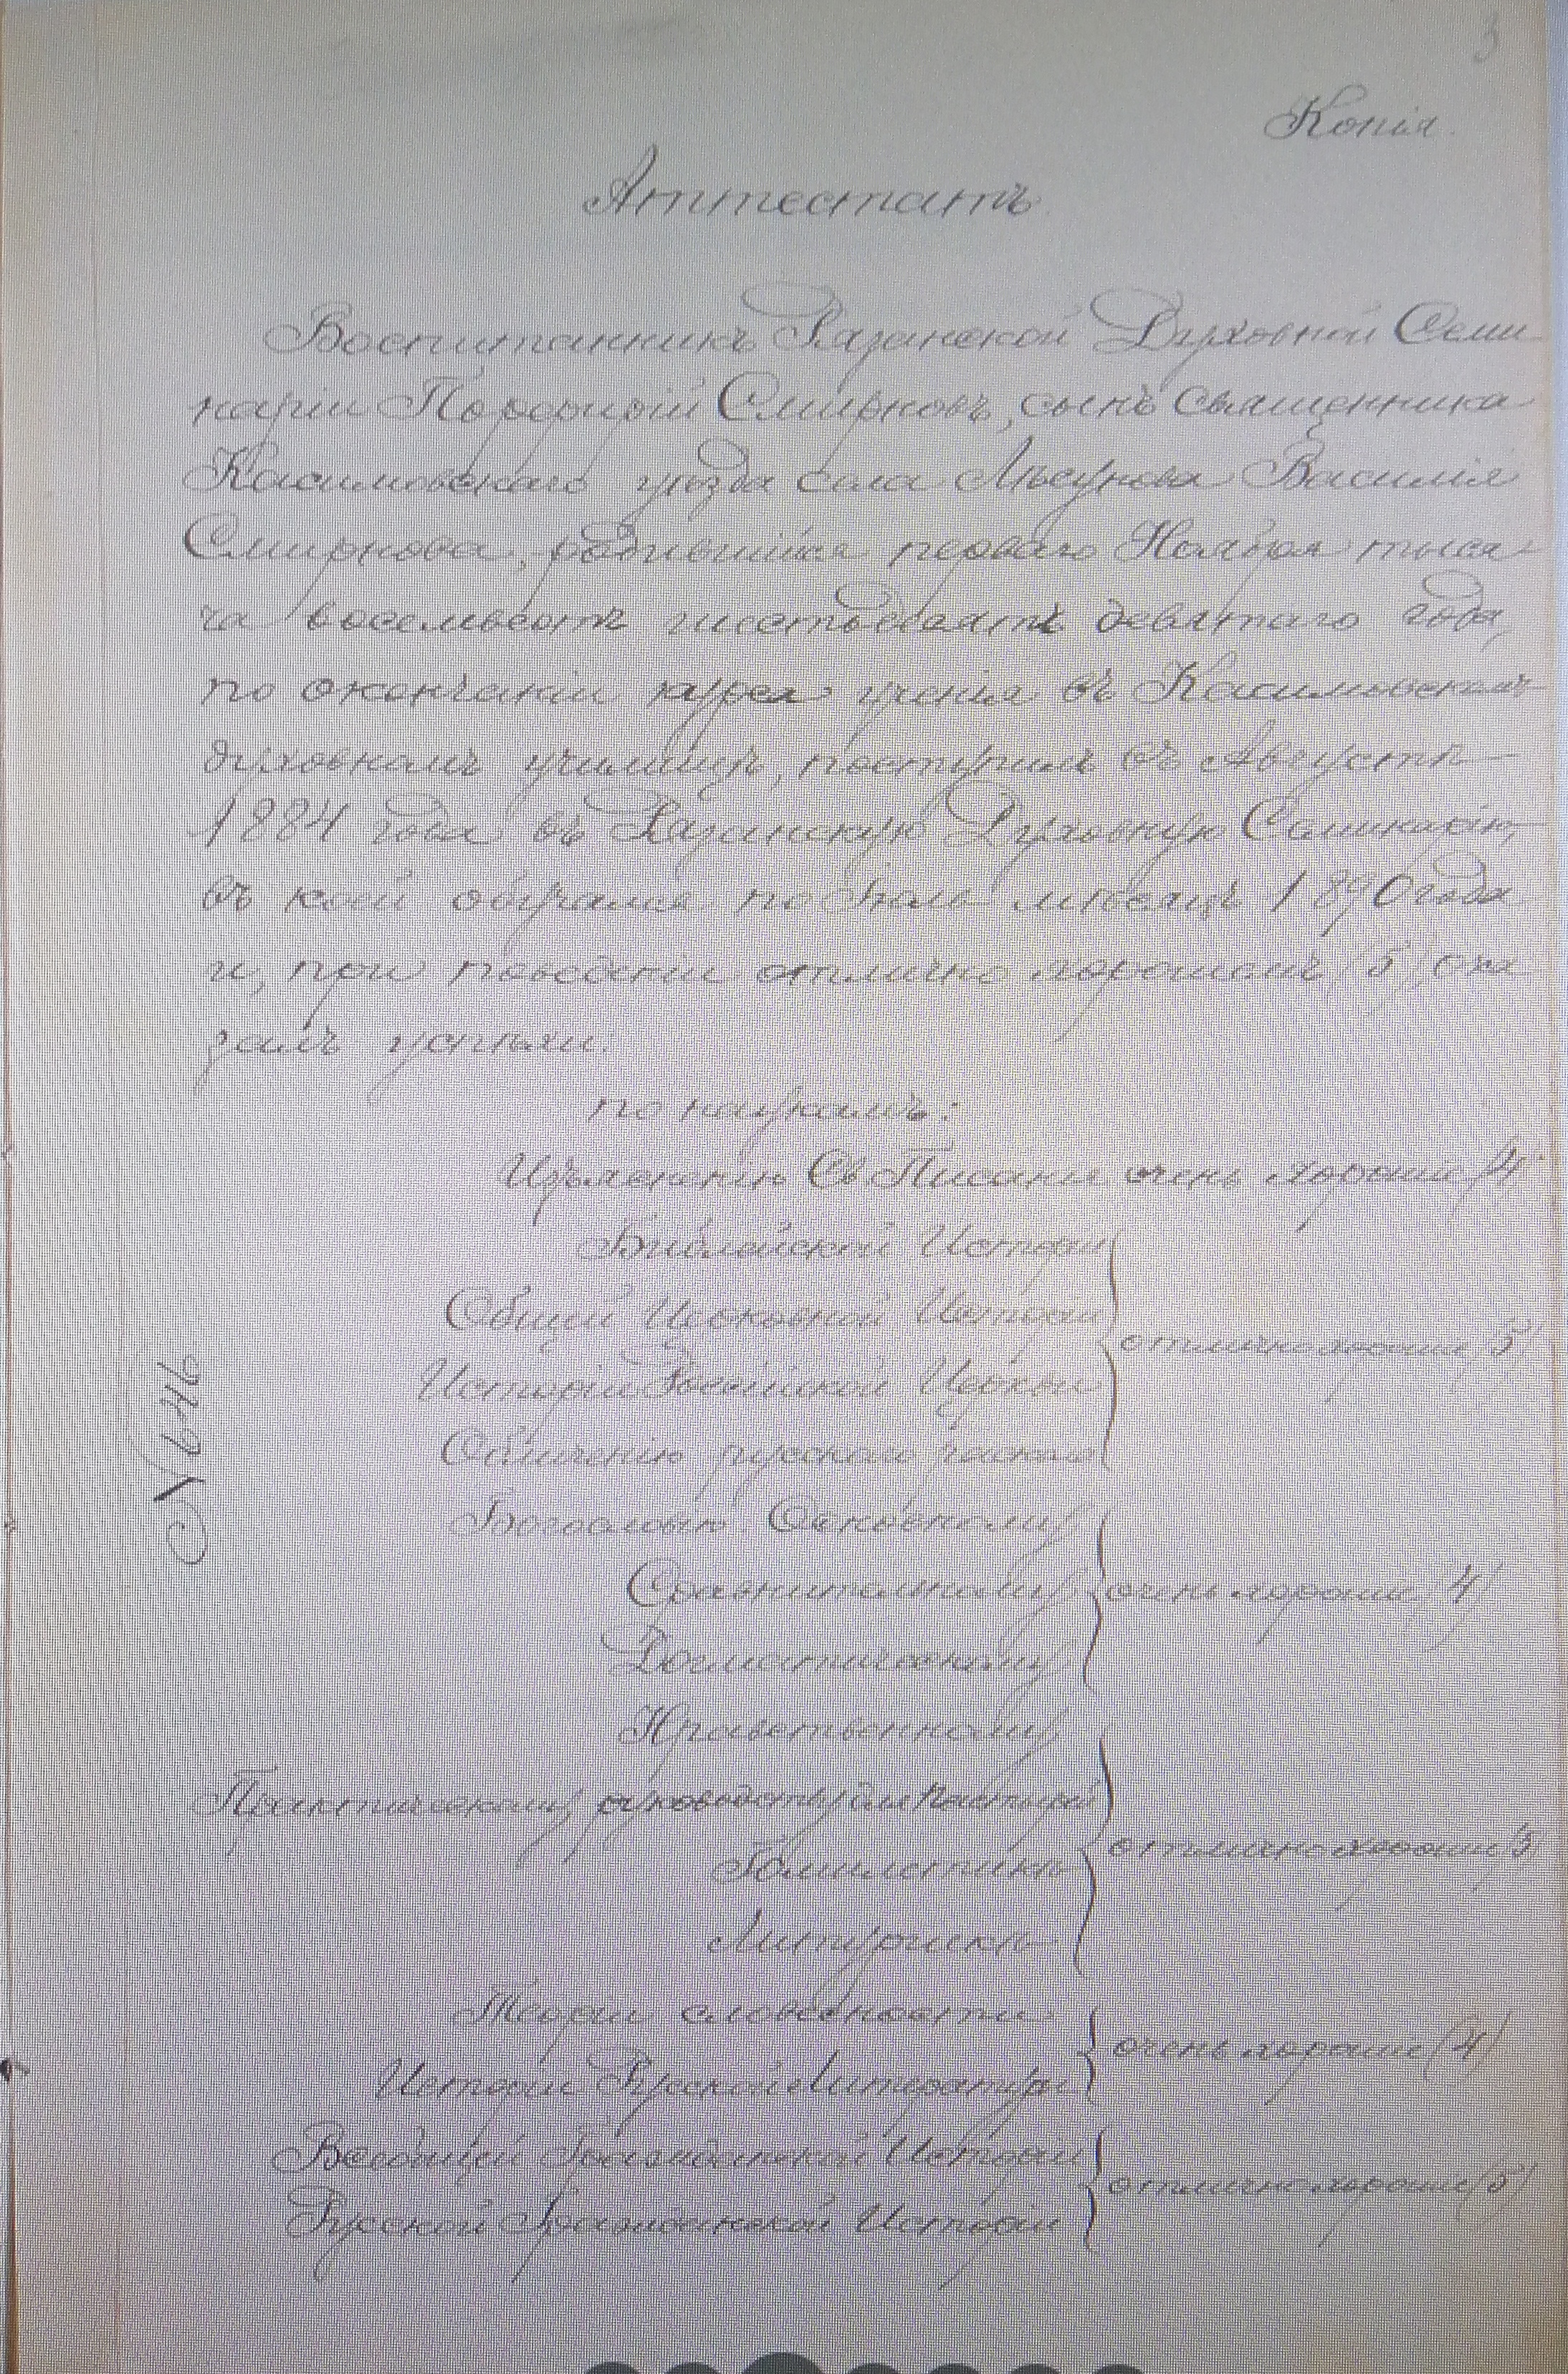 3
Копія.
Аттестатъ
Воспитанникъ Рязанской Духовной Семи
наріи Порфирій Смирновъ, сынъ Священника
Касимовскаго уѣзда села Василія
Смирнова, родившійся перваго Ноября тыся
ча восемьсотъ шестьдесятъ девятаго года,
по окончаніи курса ученія въ Касимовскомъ
духовномъ училищѣ, поступилъ въ Августѣ
1884 года въ Рязанскую Духовную Семинарію,
въ коей обучался по Іюнь мѣсяцъ 1890 года
и, при поведеніи отлично хорошемъ (5) ока
залъ успѣхи:
по наукамъ:
Изъясненію Св Писанія очень хорошіе (4)
Библейской Исторіи
Общей Церковной Исторіи
отлично хорошіе (5)
Исторіи Россійской Церкви
Обличенію русскаго раскола
Богословію Основному
Сравнительному очень хорошіе (4)
Догматическому
Нравственному
Практическому руководству для Пастырей
отлично хорошіе (5)
Гомилетикѣ
Литургикѣ
Теоріи словесности
очень хорошіе (4)
Исторіи Русской Литературы
Всеобщей Гражданской Исторіи
отлично хорошіе (5)
Русской Гражданской Исторіи